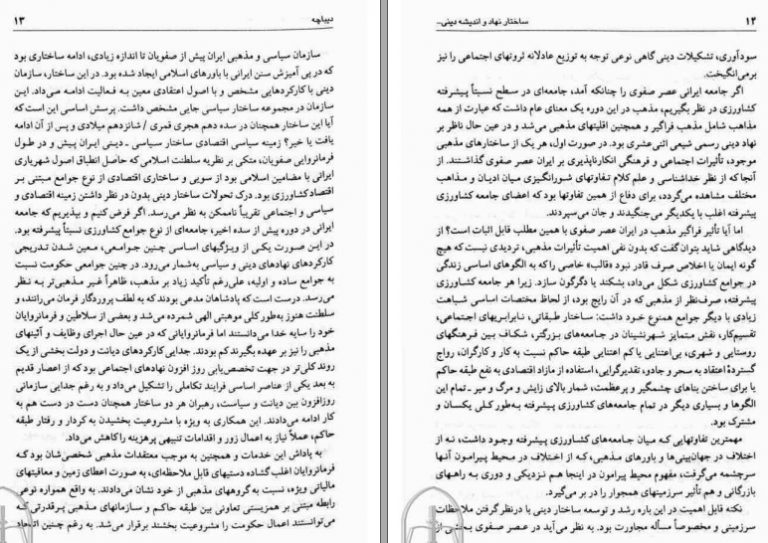 ۱۲
ساختار نهاد و اندیشه دینی...
سودآوری، تشکیلات دینی گاهی نوعی توجه به توزیع عادلانه ثروتهای اجتماعی را نیز
برمی‌انگیخت.
اگر جامعه ایرانی عصر صفوی را چنانکه آمد، جامعه‌ای در سطح نسبتاً پیشرفته
کشاورزی در نظر بگیریم، مذهب در این دوره یک معنای عام داشت که عبارت از همه
مذاهب شامل مذهب فراگیر و همچنین اقلیتهای مذهبی می‌شد و در عین حال ناظر بر
نهاد دینی رسمی شیعی اثنی‌عشری بود. در صورت اول، هر یک از ساختارهای مذهبی
موجود، تأثیرات اجتماعی و فرهنگی انکارناپذیری بر ایران عصر صفوی گذاشتند. از
آنجا که از نظر خداشناسی و علم کلام تفاوتهای شورانگیزی میان ادیان و مذاهب
مختلف مشاهده می‌گردد، برای دفاع از همین تفاوتها بود که اعضای جامعه کشاورزی
پیشرفته اغلب با یکدیگر می‌جنگیدند و جان می‌سپردند.
اما آیا تأثیر فراگیر مذهب در ایران عصر صفوی با همین مطلب قابل اثبات است؟ از
دیدگاهی شاید بتوان گفت که بدون نفی اهمیت تأثیرات مذهبی، تردیدی نیست که هیچ
گونه ایمان یا اخلاص صرف قادر نبود «قالب» خاصی را که به الگوهای اساسی زندگی
در جوامع کشاورزی شکل می‌داد، بشکند یا دگرگون سازد. زیرا هر جامعه کشاورزی
پیشرفته، صرف‌نظر از مذهبی که در آن رایج بود، از لحاظ مختصات اساسی شباهت
زیادی با دیگر جوامع همنوع خود داشت: ساختار طبقاتی، نابرابریهای اجتماعی،
تقسیم‌کار، نقش متمایز شهرنشینان در جامعه‌های بزرگتر، شکاف بین فرهنگهای
روستایی و شهری، بی‌اعتنایی یا کم اعتنایی طبقه حاکم نسبت به کار و کارگران، رواج
گستردهٔ اعتقاد به سحر و جادو، تقدیرگرایی، استفاده از مازاد اقتصادی به نفع طبقه حاکم
یا برای ساختن بناهای چشمگیر و پرعظمت، شمار بالای زایش و مرگ و میر ـ تمام این
الگوها و بسیاری دیگر در تمام جامعه‌های کشاورزی پیشرفته به‌طور کلی یکسان و
مشترک بود.
مهمترین تفاوتهایی که میان جامعه‌های کشاورزی پیشرفته وجود داشت، نه از
اختلاف در جهان‌بینی‌ها و باورهای مذهبی، که از اختلاف در محیط پیرامون آنها
سرچشمه می‌گرفت، مفهوم محیط پیرامون در اینجا هم نزدیکی و دوری به راههای
بازرگانی و هم تأثیر سرزمینهای همجوار را در بر می‌گیرد.
نکته قابل اهمیت در این باره رشد و توسعه ساختار دینی با درنظر گرفتن ملاحظات
سرزمینی و مخصوصاً مسأله مجاورت بود. به نظر می‌آید در عصر صفوی بخشی از
دیباچه
۱۳
سازمان سیاسی و مذهبی ایران پیش از صفویان تا اندازه زیادی، ادامه ساختاری بود
که در پی آمیزش سنن ایرانی با باورهای اسلامی ایجاد شده بود. در این ساختار، سازمان
دینی با کارکردهایی مشخص و با اصول اعتقادی معین به فعالیت ادامه می‌داد. این
سازمان در مجموعه ساختار سیاسی جایی مشخص داشت. پرسش اساسی این است که
آیا این ساختار همچنان در سده دهم هجری قمری / شانزدهم میلادی و پس از آن ادامه
یافت یا خیر؟ زمینه سیاسی اقتصادی ساختار سیاسی ـ دینی ایران پیش و در طول
فرمانروایی صفویان، متکی بر نظریه سلطنت اسلامی که حاصل انطباق اصول شهریاری
ایرانی با مضامین اسلامی بود از سویی و ساختاری اقتصادی از نوع جوامع مبتنی بر
اقتصاد کشاورزی بود. درک تحولات ساختار دینی بدون در نظر داشتن زمینه اقتصادی و
سیاسی و اجتماعی تقریباً ناممکن به نظر می‌رسد. اگر فرض کنیم و بپذیریم که جامعه
ایرانی در دوره پیش از سده اخیر، جامعه‌ای از نوع جوامع کشاورزی نسبتاً پیشرفته بود.
در این صورت یکی از ویژگیهای اساسی چنین جوامعی، معین شدن تدریجی
کارکردهای نهادهای دینی و سیاسی به‌شمار می‌رود. در چنین جوامعی حکومت نسبت
به جوامع ساده و اولیه، علی‌رغم تأکید زیاد بر مذهب، ظاهراً غیر مذهبی‌تر به نظر
می‌رسد. درست است که پادشاهان مدعی بودند که به لطف پروردگار فرمان می‌رانند، و
سلطنت هنوز به‌طور کلی موهبتی الهی شمرده می‌شد و بعضی از سلاطین و فرمانروایان
خود را سایه خدا می‌دانستند اما فرمانروایانی که در عین حال اجرای وظایف و آئینهای
مذهبی را نیز بر عهده بگیرند کم بودند. جدایی کارکردهای دیانت و دولت بخشی از یک
روند کلی‌تر در جهت تخصص‌یابی روز افزون نهادهای اجتماعی بود که از اعصار قدیم
به بعد یکی از عناصر اساسی فرایند تکاملی را تشکیل می‌داد و به رغم جدایی سازمانی
روزافزون بین دیانت و سیاست، رهبران هر دو ساختار همچنان دست در دست هم به
کار ادامه می‌دادند. این همکاری به ویژه با مشروعیت بخشیدن به کردار و رفتار طبقه
حاکم، عملاً نیاز به اعمال زور و اقدامات تنبیهی پرهزینه را کاهش می‌داد.
به پاداش این خدمات و همچنین به موجب معتقدات مذهبی شخصی‌شان بود که
فرمانروایان اغلب گشاده دستیهای قابل ملاحظه‌ای، به صورت اعطای زمین و معافیتهای
مالیاتی ویژه، نسبت به گروههای مذهبی از خود نشان می‌دادند. به واقع همواره نوعی
رابطه مبتنی بر همزیستی تعاونی بین طبقه حاکم و سازمانهای مذهبی پرقدرتی که
می‌توانستند اعمال حکومت را مشروعیت بخشند برقرار می‌شد. به رغم چنین اتحاد